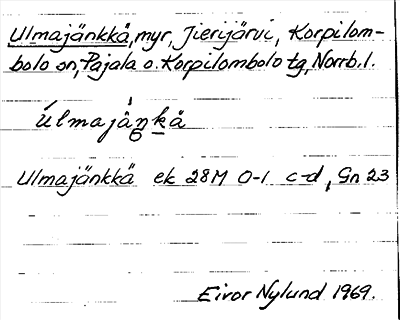 Ulmajänkkä, myr, Jierijärvi, Korpilom-
bolo sn, Pajala o. Korpilombolo tg, Norrb. l.
Úlmajänkä
Ulmajänkkä ek 28M 0-1 c-d, Gn 23
Eivor Nylund 1969.